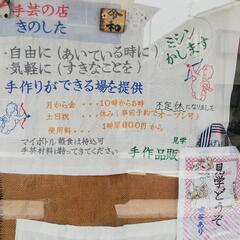 手芸の店
きのした
令和
ミシン
かします
・自由に(あいている時に)
・気軽に(すきなことを)
手作りができる場を提供
月から金 ― 10時から5時
土日祝 ― 休み(事前予約でオープン可)
不定休になりました
使用料 ― 1時間600円から
マイボトル 軽食は持込可
手芸材料は持ってきてください
見学
手作品販
見学どうぞ